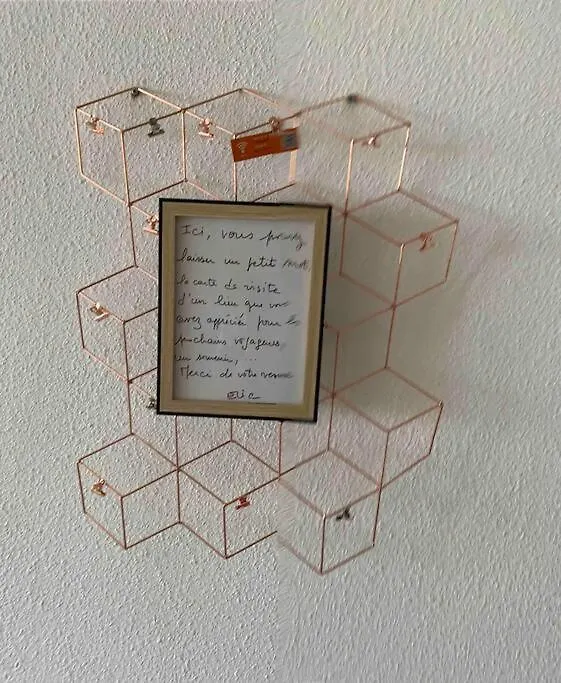 Ici, vous pouvez
laisser un petit mot,
la carte de visite
d'un lieu que vous
avez appréciée pour les
prochains voyageurs,
un souvenir, ...
Merci de votre venue
eric